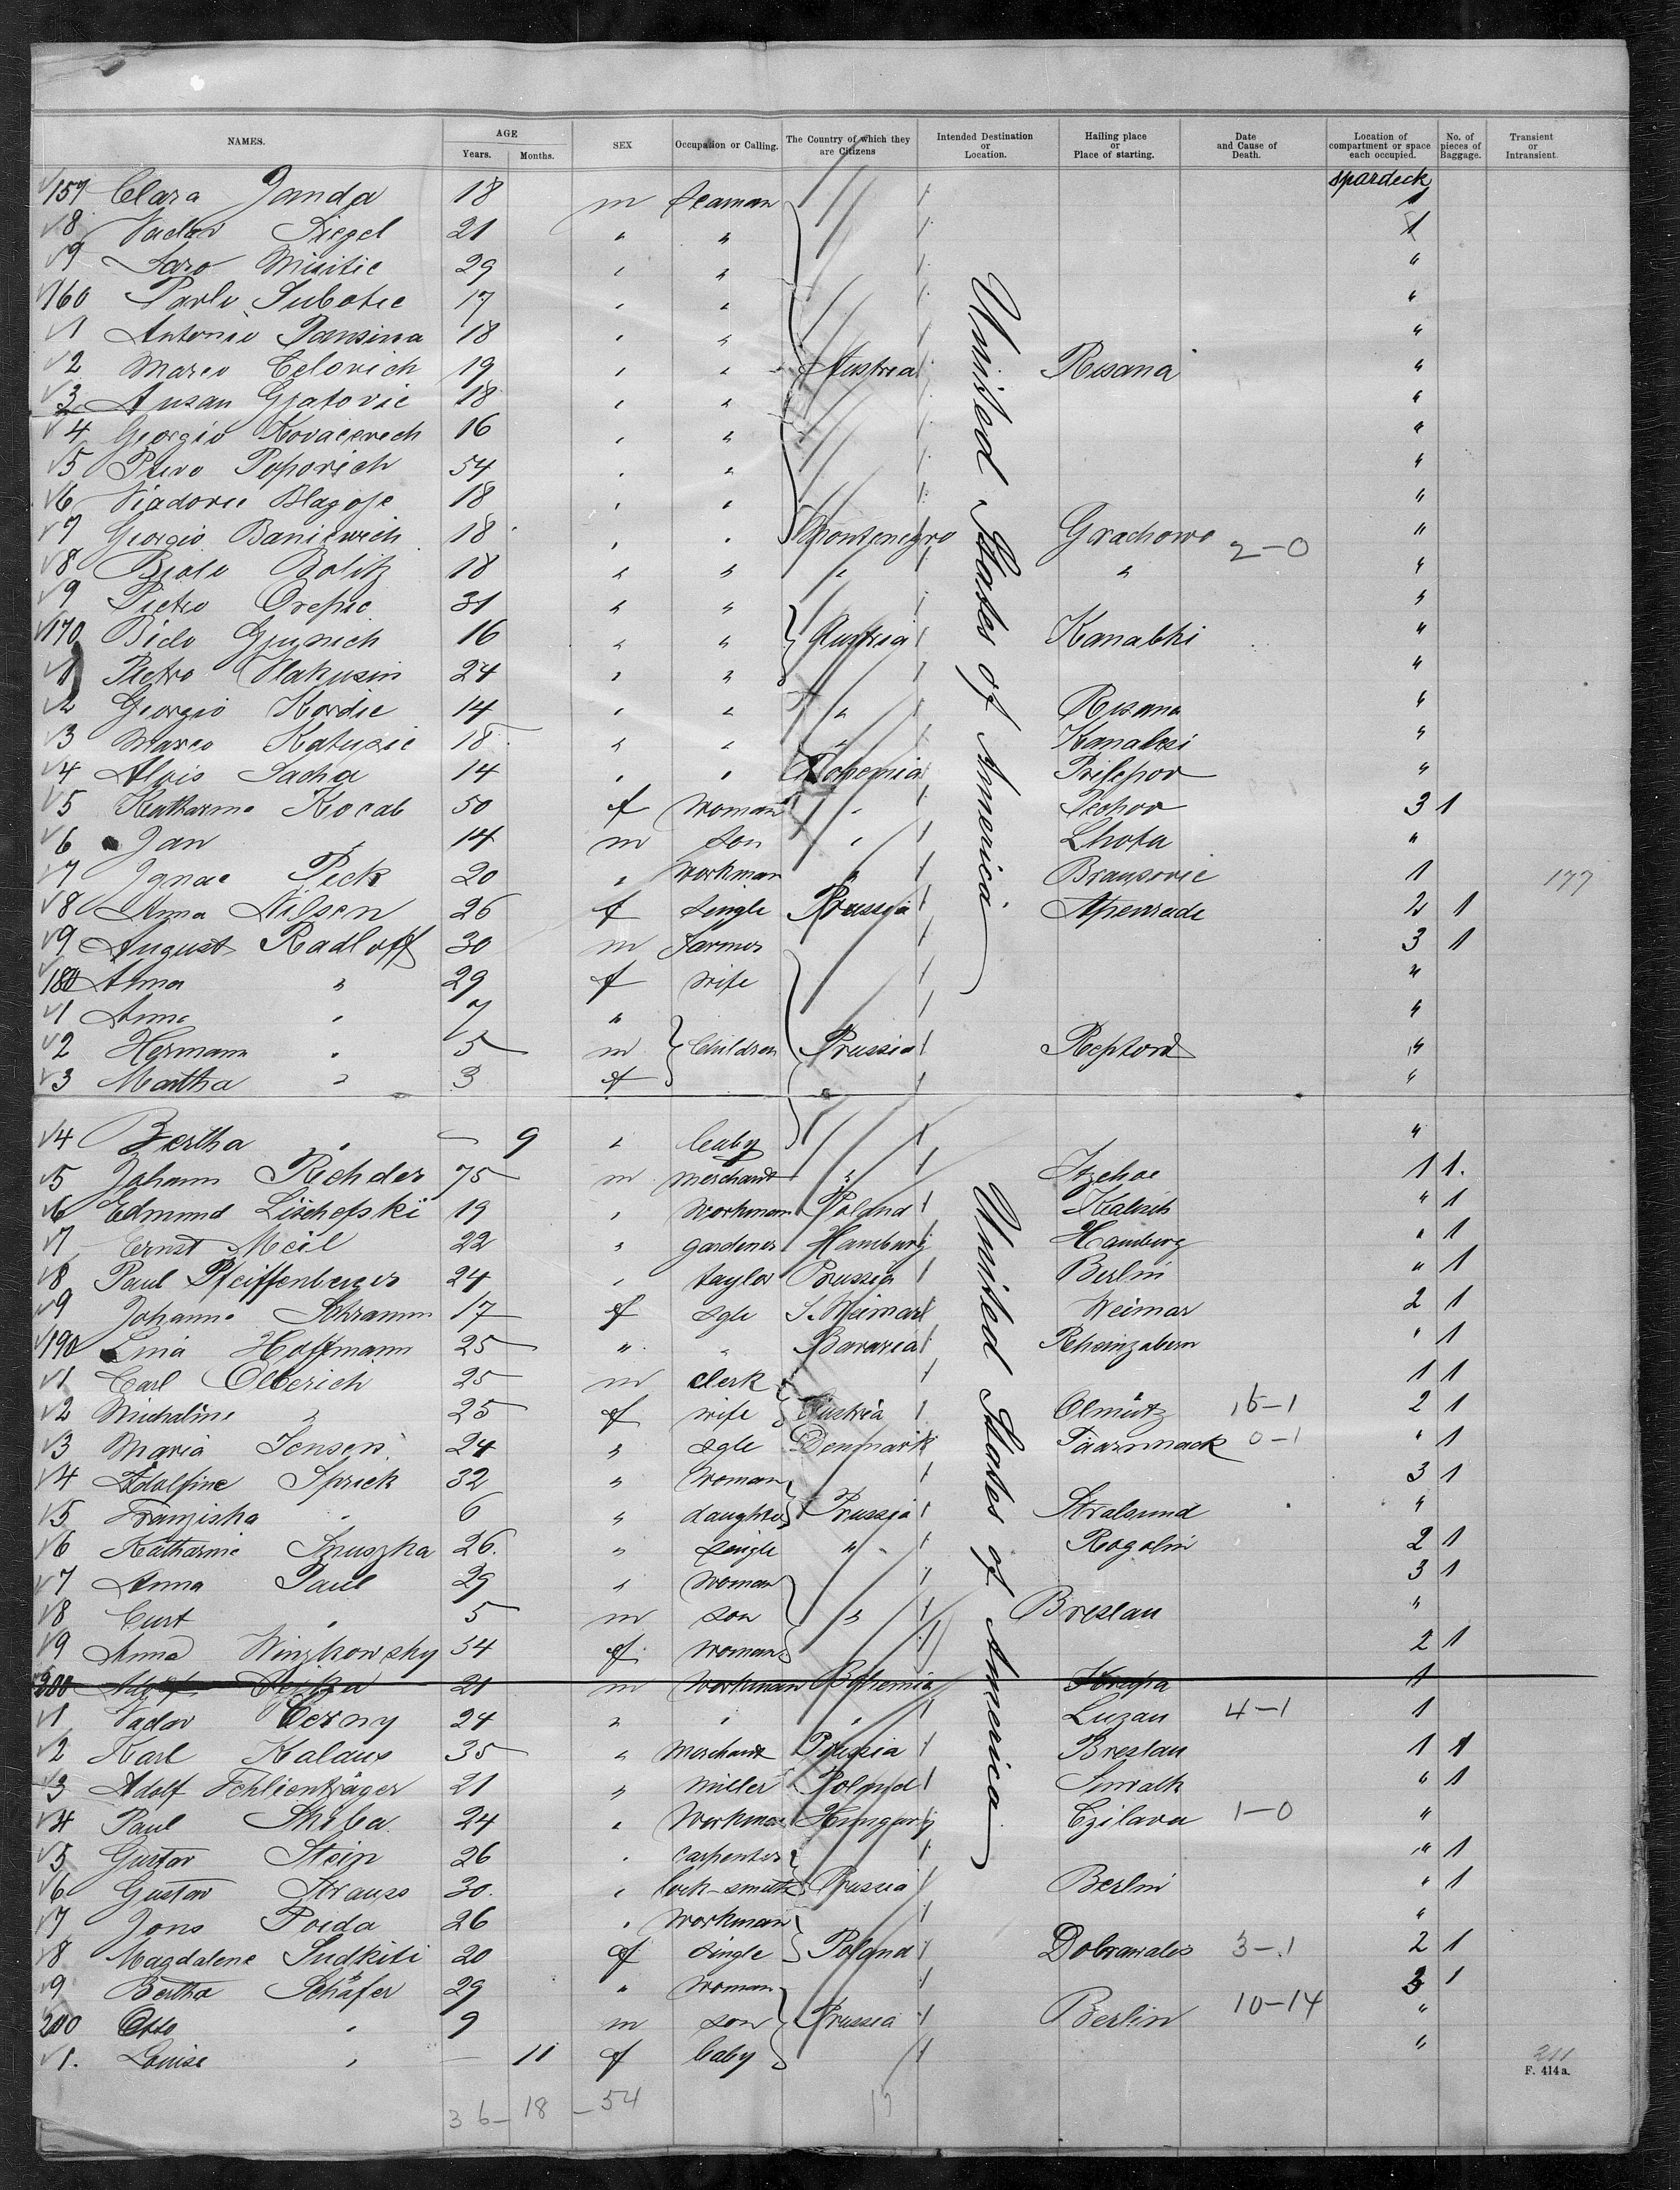 NAMES. AGE Years. Months. SEX Occupation or Calling. The Country of which they are Citizens Intended Destination or Location. Hailing place or Place of starting. Date and Cause of Death. Location of compartment or space each occupied. No. of pieces of Baggage. Transient or Intransient.
spardeck
157 Clara Janda 18 m seaman 1
8 Siegel 21 " " 1
9 Misitic 29 " " "
160 Pavlo Subotic 17 " " "
1 Antonio 18 " " "
2 Marco Celovich 19 " " Austria Risana "
3 Gjatovic 18 " " "
4 Georgio Kovacevich 16 " " "
5 Popovich 54 " " "
6 Blagoje 18 " " "
7 Georgio Banicevich 18 " " Montenegro Grachowo 2-0 "
8 18 " " " " "
9 Pietro Orepic 31 " " "
170 16 " " Austria "
1 Pietro Vlakusin 24 " " "
2 Georgio Kordic 14 " " " Risana "
3 Marco Katusic 18 " " " "
4 Alois Sacha 14 " " Bohemia Prilepov "
5 Katharina Kocab 50 f woman " 3 1
6 Jan " 14 m son " Lhota "
7 Ignac Peck 20 " workman " 1 177
8 Anna Nilsen 26 f single Prussia Apenrade 2 1
9 August Radloff 30 m farmer 3 1
180 Anna " 29 f wife "
1 Anna " 7 " "
2 Hermann " 5 m Children Prussia "
3 Martha " 3 f "
4 Bertha " — 9 " baby "
5 Johann Richder 75 m merchant " Itzehoe 1 1.
6 Edmund Lischefski 19 " workman Poland Kalisch " 1
7 Ernst Meil 22 " gardener Hamburg Hamburg " 1
8 Paul Pfeiffenberger 24 " taylor Prussia Berlin " 1
9 Johanne Schramm 17 f sgle S. Weimar Weimar 2 1
190 Lina Hoffmann 25 " " Bavaria Rheinzabern " 1
1 Carl Olberich 25 m clerk 1 1
2 Michaline " 25 f wife Austria Olmütz 15-1 2 1
3 Maria Jensen 24 " sgle Denmark Taarnmack 0-1 " 1
4 Adolfine Sprick 32 " woman 3 1
5 Franziska " 6 " daughter Prussia Stralsund "
6 Katharine Smuszka 26. " single " Rogolin 2 1
7 Anna Paul 29 " woman 3 1
8 Curt " 5 m son " Breslau "
9 Anna Winzkowsky 34 f woman 2 1
200 21 m workman Bohemia 1
1 Vaclav Cerny 24 " " " Luzan 4-1 1
2 Karl Kalaus 35 " merchant Prussia Breslau 1 1
3 Adolf Schlienträger 21 " miller Poland Suwalk " 1
4 Paul Skiba 24 " workman Hungary Czilava 1-0 "
5 Gustav Stein 26 " carpenter " 1
6 Gustav Strauss 30. " lock-smith Prussia Berlin " 1
7 Jons Poida 26 " workman "
8 Magdalene Sudkiti 20 f single Poland Dobrawalis 3-1 2 1
9 Bertha Schäfer 29 " woman 3 1
200 Otto " 9 m son Prussia Berlin 10-14 "
1. Louise " — 11 f baby "
United States of America
United States of America
211
F. 414a.
36-18-54 17